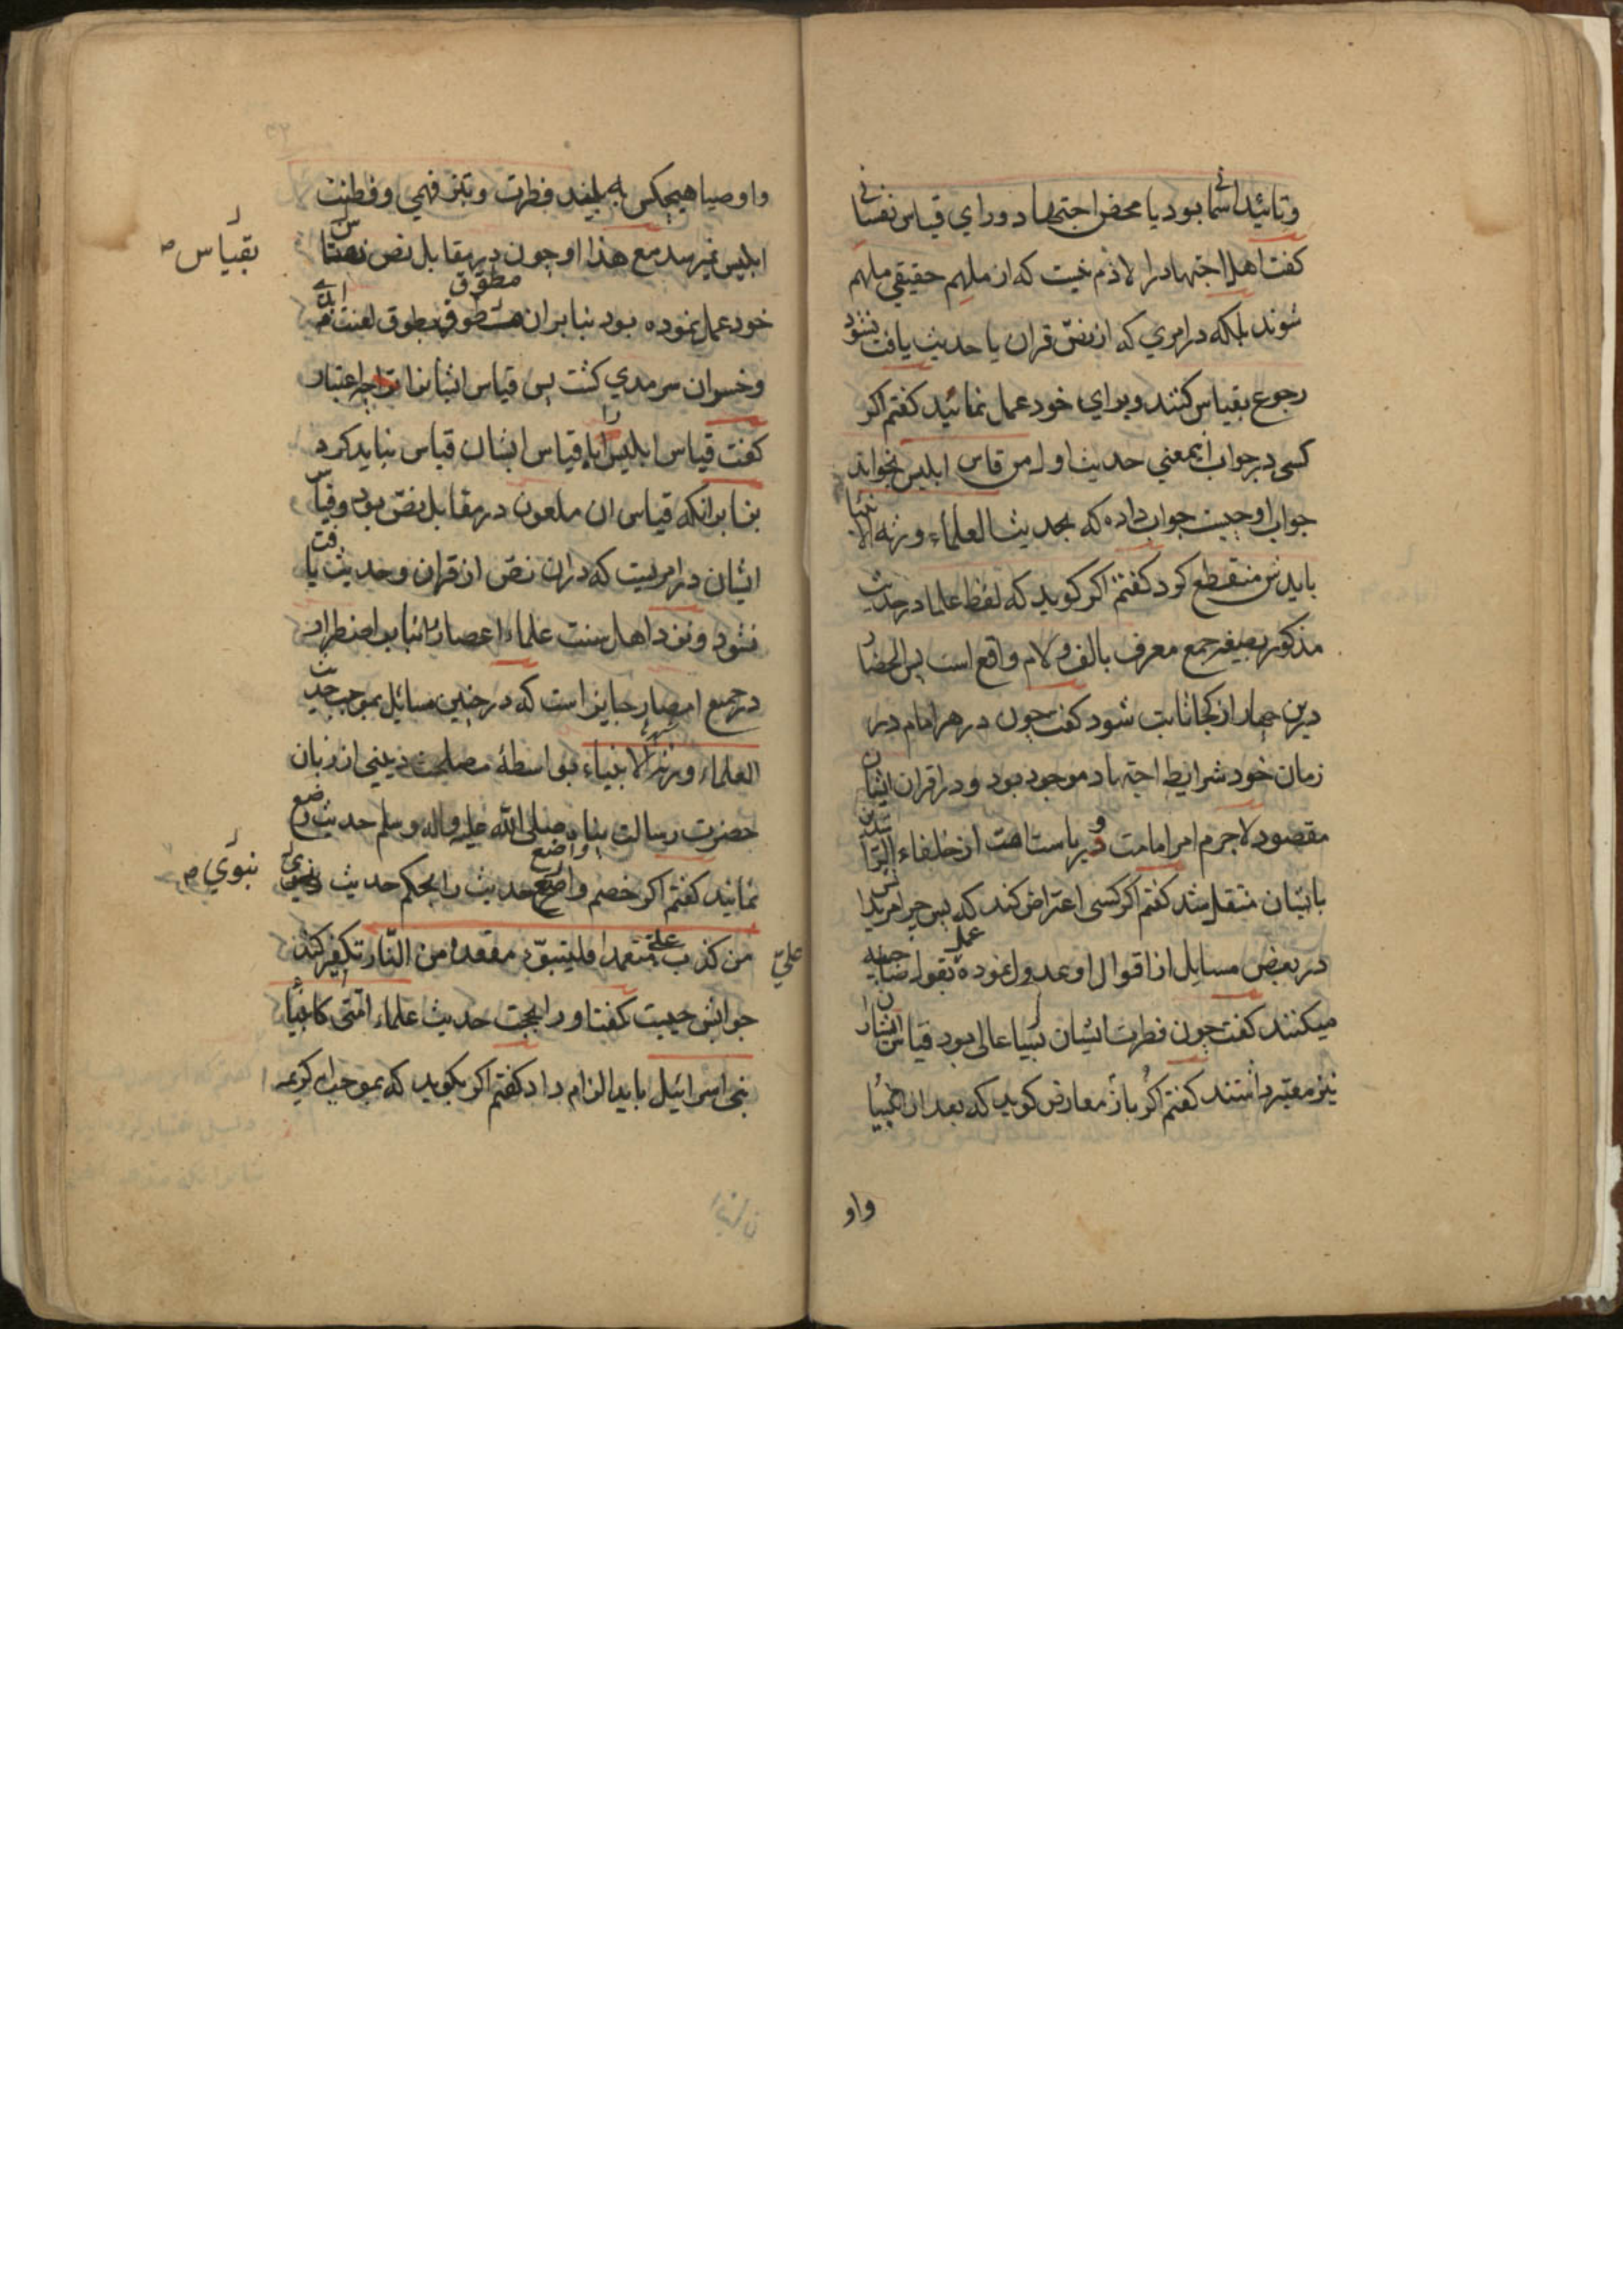 وتائید اسمانی بود یا محض اجتهاد ورای قیاس نفسانی
کفت اهل اجتهاد را لازم نیست که از ملهم حقیقی ملهم
شوند بلکه در امری که از نص قران یا حدیث یافت نشود
رجوع بقیاس کنند وبرای خود عمل نمائید کفتم اکر
کسی در جواب اینمعنی حدیث اول من قاس ابلیس بخواند
جواب او چیست جواب داده که بحدیث العلماء ورثه الانبیا
باید ش منقطع کرد کفتم اکر کوید که لفظ علما در حدیث
مذکور بصیغه جمع معرف بالف و لام واقع است پس انحصار
درین چهار از کجا ثابت شود کفت چون در هر امام در
زمان خود شرایط اجتهاد موجود بود و در اقران ایشان
مقصود لاجرم امر امامت و ریاست امت از خلفاء الراشدین
بایشان منتقل شد کفتم اکر کسی اعتراض کند که پس چرا مریدان
در بعض مسایل از اقوال او عدول نموده بقول صاحبیه عمل
میکنند کفت چون فطرت ایشان بسیار عالی بود قیاس ایشانرا
نیز معتبر داشتند کفتم اکر باز معارض کوید که بعد از انبیا
واو
واوصیا هیچکس به بلند فطرت وتیز فهمی وفطنت
ابلیس نمیرسد مع هذا او چون در مقابل نص بقیاس
خود عمل نموده بود بنابران مطوق بطوق لعنت ابدی
وخسران سرمدی کشت پس قیاس ایشانرا چه اعتبار
کفت قیاس ابلیس را با قیاس ایشان قیاس نباید کرد
بنا برانکه قیاس ان ملعون در مقابل نص بود وقیاس
ایشان در امریست که دران نص از قران وحدیث یافت
نشود ونزد اهل سنت علماء اعصار را بنابر اضطرار
در جمیع امصار جایز است که در چنین مسائل بموجب حدیث
العلماء ورثة الانبیاء بواسطهٔ مصلحت دینی از زبان
حضرت رسالت پناه صلی الله علیه واله وسلم حدیث وضع
نمایند کفتم اکر خصم واضع حدیث را بحکم حدیث نبوی
من کذب علی متعمدا فلیتبوّء مقعده من النّار تکفیر کند
جوابش چیست کفتا او را بحجت حدیث علماء امّتی کانبیاء
بنی اسرائیل باید الزام داد کفتم اکر بکوید که بموجب کریمه
بقیاس
نبوی
علیّ